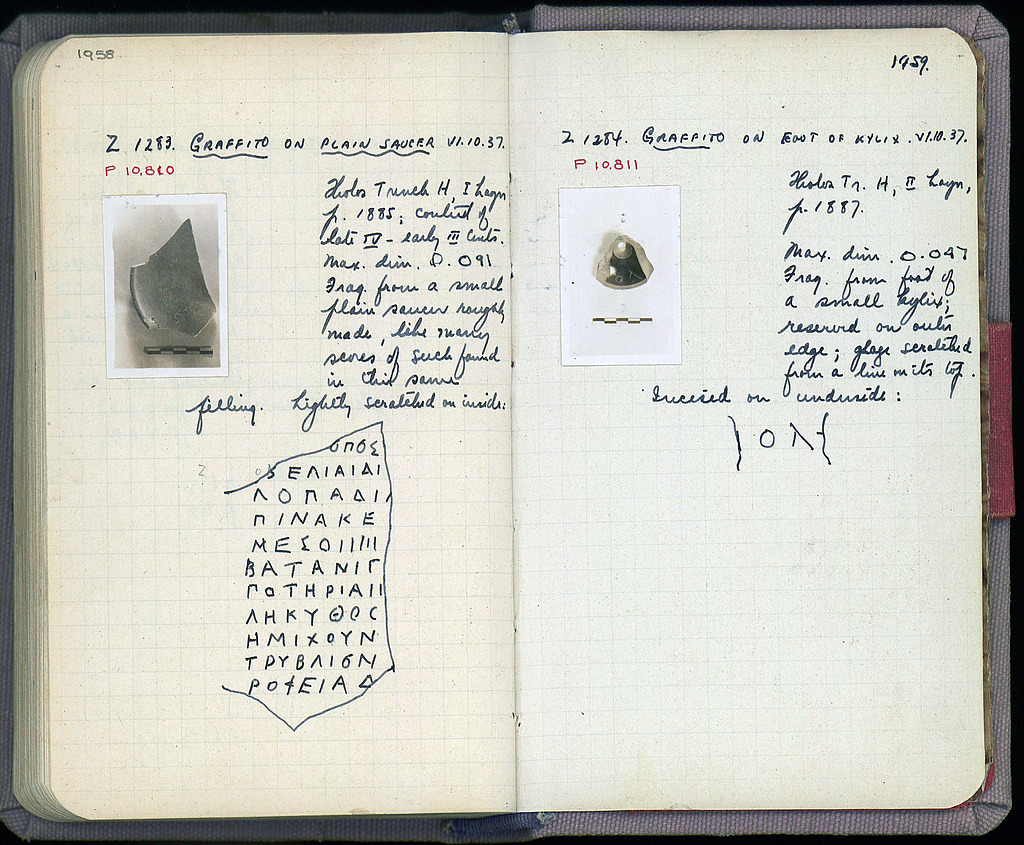 1958
Z 1283. GRAFFITO ON PLAIN SAUCER VI.10.37.
P 10,810
Tholos Trench H, I Layer
p. 1885; context of
late IV - early III Cents.
Max. dim. 0.091
Frag. from a small
plain saucer roughly
made, like many
scores of such found
in this same
filling. Lightly scratched on inside:
ΟΠΟΣ
ΕΛΙΑΙΔΙ
ΛΟΠΑΔΙ
ΠΙΝΑΚΕ
ΜΕΣΟΙΙΙΙΙ
ΒΑΤΑΝΙΓ
ΓΟΤΗΡΙΑΙΙ
ΛΗΚΥΘΟΣ
ΗΜΙΧΟΥΝ
ΤΡΥΒΛΙΟΝ
ΡΟΦΕΙΑΔ
1959.
Z 1284. GRAFFITO ON FOOT OF KYLIX. VI.10.37.
P 10,811
Tholos Tr. H, II Layer,
p. 1887.
Max. dim. 0.047
Frag. from foot of
a small kylix;
reserved on outer
edge; glaze scratched
from a line on its top.
Incised on underside:
ΙΟΛ